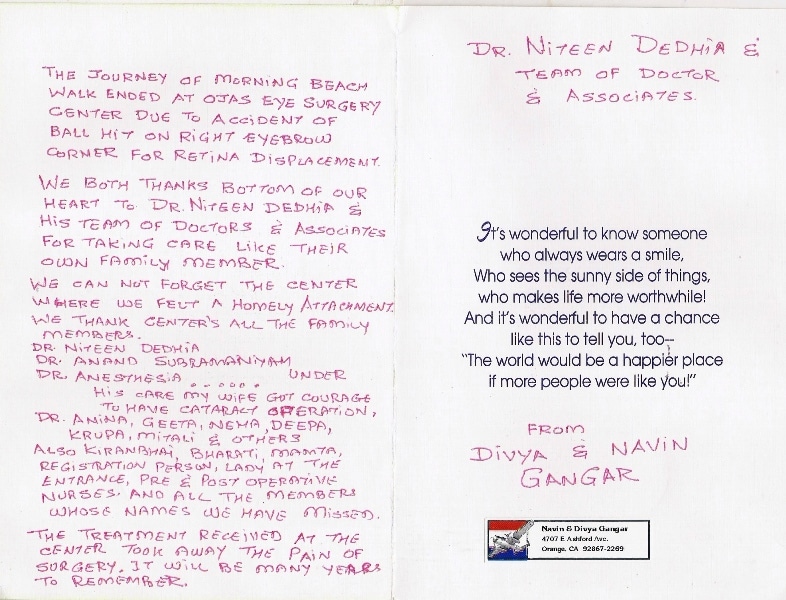 THE JOURNEY OF MORNING BEACH
WALK ENDED AT OJAS EYE SURGERY
CENTER DUE TO ACCIDENT OF
BALL HIT ON RIGHT EYEBROW
CORNER FOR RETINA DISPLACEMENT.
WE BOTH THANKS BOTTOM OF OUR
HEART TO DR. NITEEN DEDHIA &
HIS TEAM OF DOCTORS & ASSOCIATES
FOR TAKING CARE LIKE THEIR
OWN FAMILY MEMBER.
WE CAN NOT FORGET THE CENTER
WHERE WE FELT A HOMELY ATTACHMENT.
WE THANK CENTER'S ALL THE FAMILY
MEMBERS.
DR. NITEEN DEDHIA
DR. ANAND SUBRAMANIYAM
DR. ANESTHESIA ...... UNDER
HIS CARE MY WIFE GOT COURAGE
TO HAVE CATARACT OPERATION,
DR. ANINA, GEETA, NEHA, DEEPA,
KRUPA, MITALI & OTHERS
ALSO KIRANBHAI, BHARATI, MAMTA,
REGISTRATION PERSON, LADY AT THE
ENTRANCE, PRE & POST OPERATIVE
NURSES. AND ALL THE MEMBERS
WHOSE NAMES WE HAVE MISSED.
THE TREATMENT RECEIVED AT THE
CENTER TOOK AWAY THE PAIN OF
SURGERY. IT WILL BE MANY YEARS
TO REMEMBER.
DR. NITEEN DEDHIA &
TEAM OF DOCTOR
& ASSOCIATES.
It's wonderful to know someone
who always wears a smile,
Who sees the sunny side of things,
who makes life more worthwhile!
And it's wonderful to have a chance
like this to tell you, too--
"The world would be a happier place
if more people were like you!"
FROM
DIVYA & NAVIN
GANGAR
Navin & Divya Gangar
4707 E Ashford Ave.
Orange, CA 92867-2269